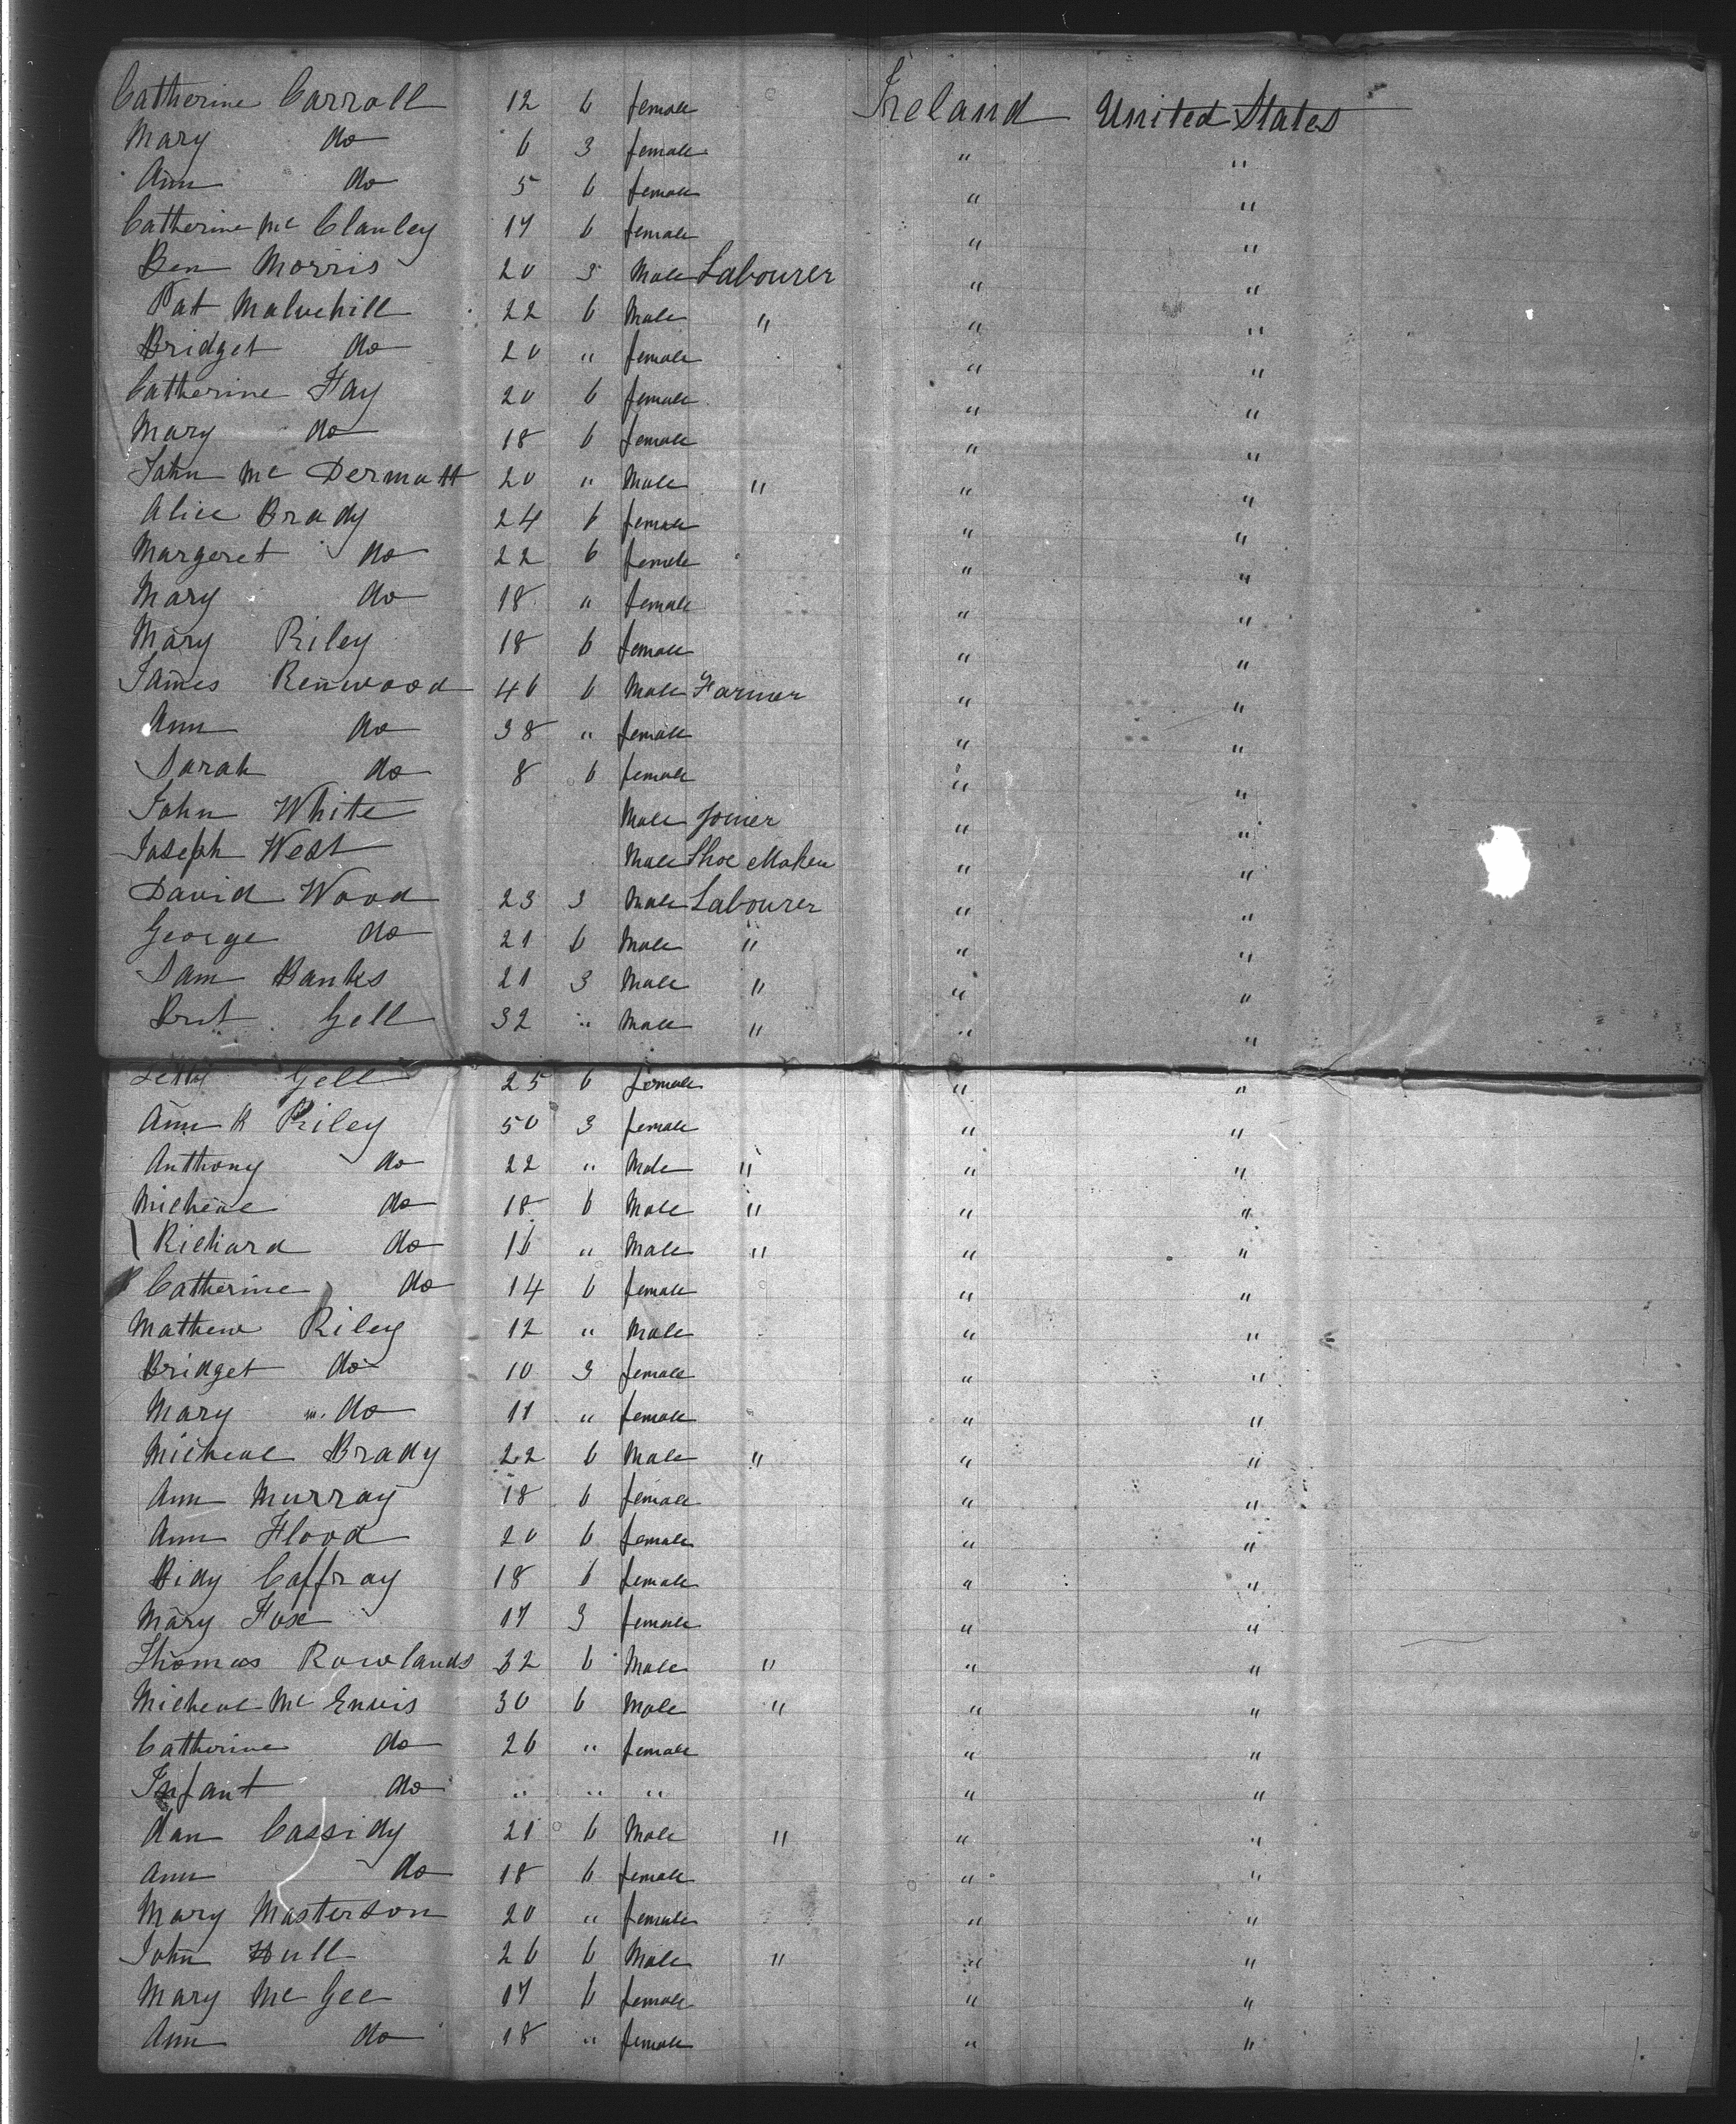 Catherine Carroll 12 6 female Ireland United States
Mary do 6 3 female " "
Ann do 5 6 female " "
Catherine Mc Clanley 17 6 female " "
Ben Morris 20 3 Male Labourer " "
Pat Malvehill 22 6 Male " " "
Bridget do 20 " female " "
Catherine Fay 20 6 female " "
Mary do 18 6 female " "
John Mc Dermott 20 " Male " " "
Alice Brady 24 6 female " "
Margeret do 22 6 female " "
Mary do 18 " female " "
Mary Riley 18 6 female " "
James Renwood 46 6 Male Farmer " "
Ann do 38 " female " "
Sarah do 8 6 female " "
John White Male Joiner " "
Joseph West Male Shoe Maker " "
David Wood 23 3 Male Labourer " "
George do 21 6 Male " " "
Sam Banks 21 3 Male " " "
Gell 32 " Male " " "
Gell 25 6 female " "
Ann R Riley 50 3 female " "
Anthony do 22 " Male " " "
Micheal do 18 6 Male " " "
Richard do 16 " Male " " "
Catherine do 14 6 female " "
Mathew Riley 12 " Male " "
Bridget do 10 3 female " "
Mary do 11 " female " "
Micheal Brady 22 6 Male " " "
Ann Murray 18 6 female " "
Ann Flood 20 6 female " "
Bidy Caffray 18 6 female " "
Mary Fox 17 3 female " "
Thomas Rowlands 32 6 Male " " "
Micheal Mc Envis 30 6 Male " " "
Catherine do 26 " female " "
Infant do " " " " "
Dan Cassidy 21 6 Male " " "
Ann do 18 6 female " "
Mary Masterson 20 " female " "
John Hull 26 6 Male " " "
Mary Mc Gee 17 6 female " "
Ann do 18 " female " "